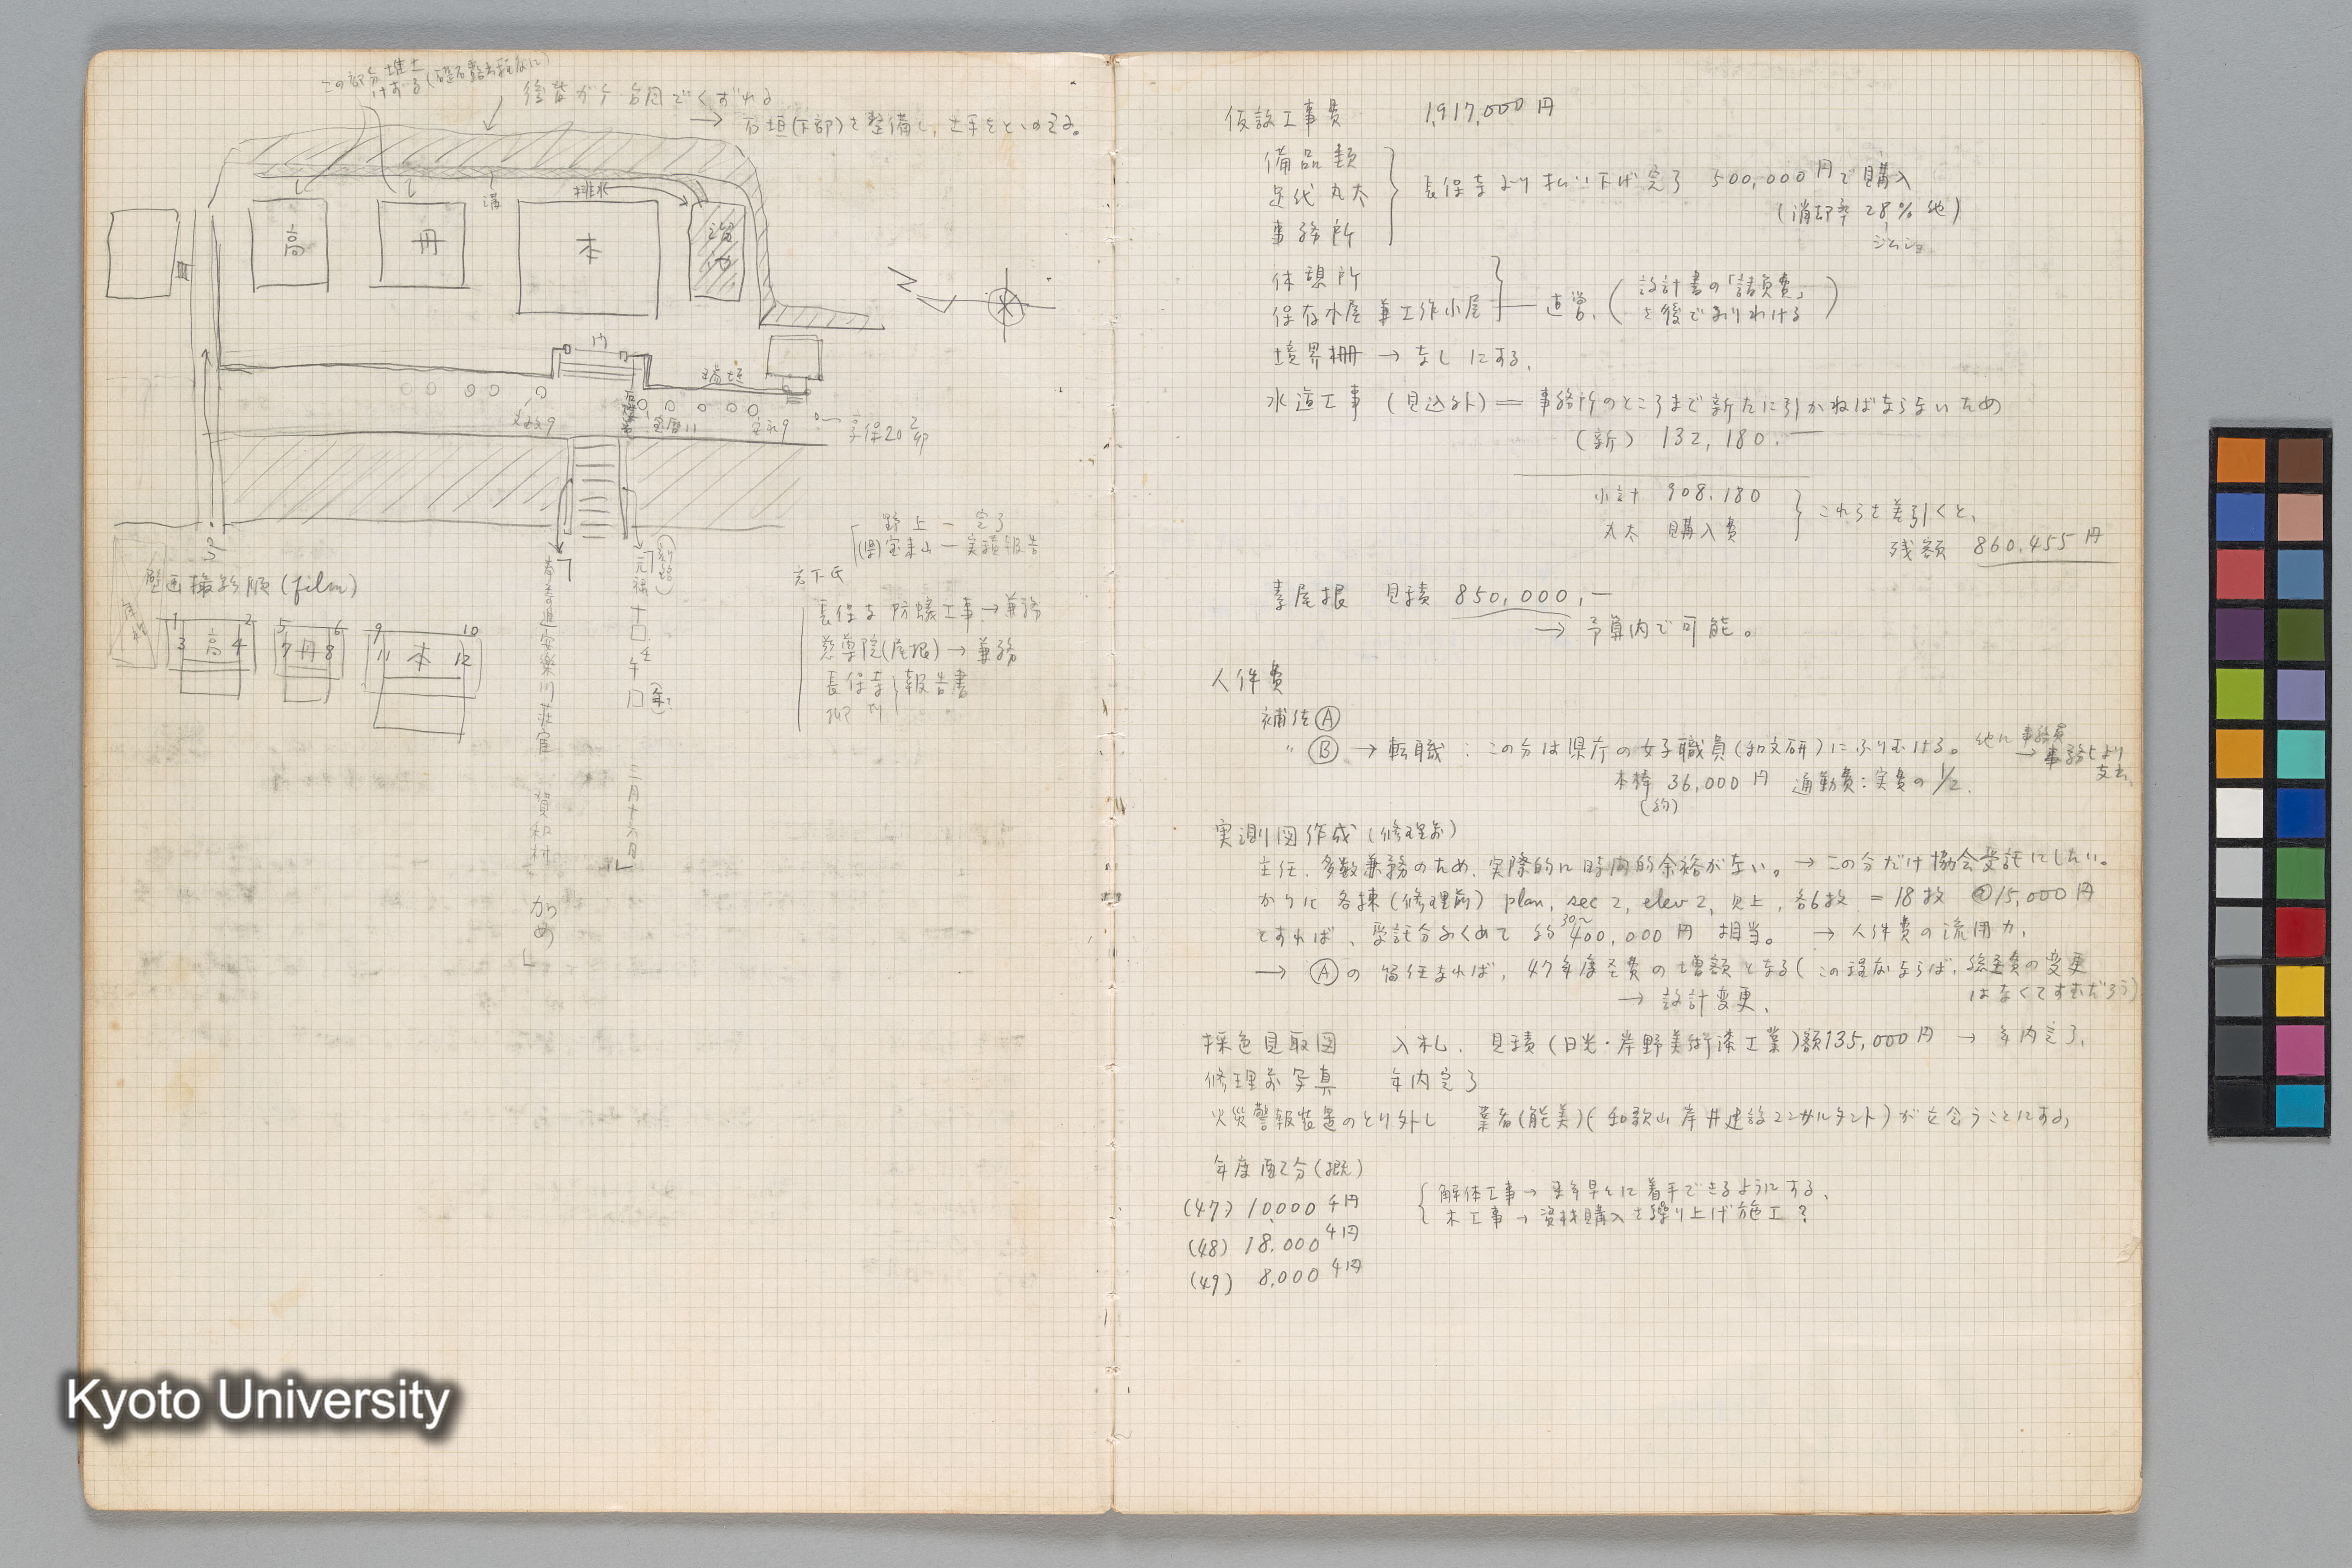 この部分堆土
けずる(礎石露出程度に)
後背がケ台風でくずれる
→ 石垣(下部)を整備し、土手をととのえる。
溝
排水
高
丹
本
溜
門
瑞垣
宝暦11
享保20 乙卯
野上 — 完了
(県)宝来山 — 実績報告
長保寺 防蟻工事→兼務
慈尊院(屋根)→兼務
長保寺 報告書
印刷
壁画撮影順(film)
1 2 3 高 4
5 6 7 丹 8
9 10 11 本 12
三月十六日
Kyoto University
仮設工事費 1,917,000円
備品類
足代丸太
事務所
長保寺より払い下げ完了 500,000円で購入
(消却率 28% 他)
休憩所
保存小屋兼工作小屋
直営、(設計書の「請負費」
を後でふりわける)
境界柵 → なしにする、
水道工事 (見込外) = 事務所のところまで新たに引かねばならないため
(新) 132,180.—
小計 908,180
丸太 購入費
これらを差引くと、
残額 860,455円
素屋根 見積 850,000,—
→ 予算内で可能。
人件費
補佐Ⓐ
〃 Ⓑ → 転職:この分は県庁の女子職員(和文研)にふりむける。
本棒 36,000円 通勤費:実費の1/2.
(約)
実測図作成(修理前)
主任、多数兼務のため、実際的に時間的余裕がない。→ この分だけ協会受託にしたい。
かりに各棟(修理前) plan, sec 2, elev 2, 見上, 各6枚 = 18枚 @15,000円
とすれば、受託分ふくめて 約 30~400,000円 相当。 → 人件費の流用カ、
→ Ⓐの留任なれば、47年度経費の増額となる(この程度ならば、総経費の変更
はなくてすむだろう)
→ 設計変更、
採色見取図 入札、見積(日光・岸野美術漆工業)額135,000円 → 年内完了、
修理前写真 年内完了
火災警報装置のとり外し 業者(能美)(和歌山岸井建設コンサルタント)が立会うことにする
年度配分(概)
(47) 10,000千円
(48) 18,000千円
(49) 8,000千円
解体工事→来年早々に着手できるようにする、
木工事→資材購入を繰り上げ施工?